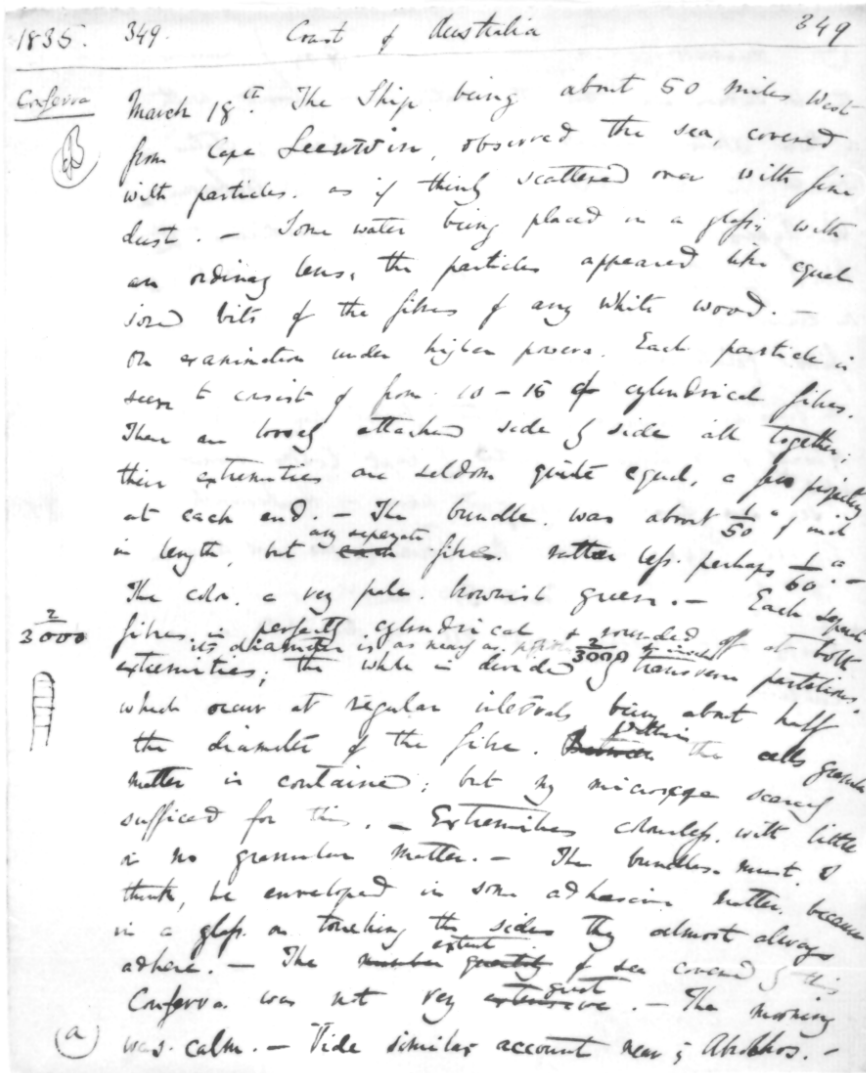 1835. 349. Coast of Australia 349
Conferva
March 18th. The Ship being about 50 miles West
from Cape Leeuwin, observed the sea covered
with particles. as if thinly scattered over with fine
dust. — Some water being placed in a glass, with
an ordinary lens, the particles appeared like equal
sized bits of the fibres of any white wood. —
On examination under higher powers. Each particle is
seen to consist of from 10 – 15 of cylindrical fibres.
These are loosely attached side by side all together;
their extremities are seldom quite equal, a few projecting
at each end. — The bundle was about 1/50" of inch
any seperate
in length, but each fibres rather less. perhaps 1/60. —
The color, a very pale brownish green. — Each seperate
2/3000
fibres is perfectly cylindrical & rounded off at both
its diameter is as nearly as 2/3000 of inch
extremities; the whole is divided by transverse partitions.
which occur at regular intervals being about half
within
the diameter of the fibre. Between the cells granular
matter is contained; but my microscope scarcely
sufficed for this. — Extremities colourless. with little
or no granular matter. — The bundles must, I
think, be enveloped in some adhesive matter. because
in a glass on touching the sides they almost always
extent
adhere. — The number quantity of sea covered by this
great
Conferva was not very extensive. — The morning
(a)
was calm. — Vide similar account near Abrolhos. —